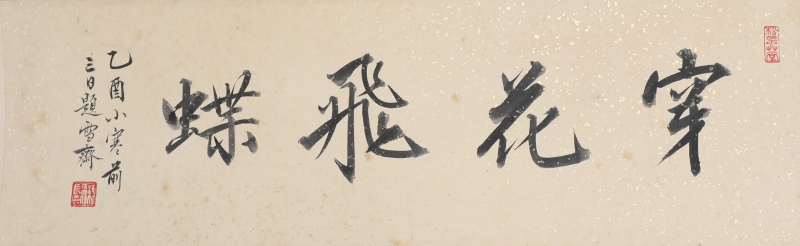 穿花飛蝶
乙酉小寒前
三日題雪齋